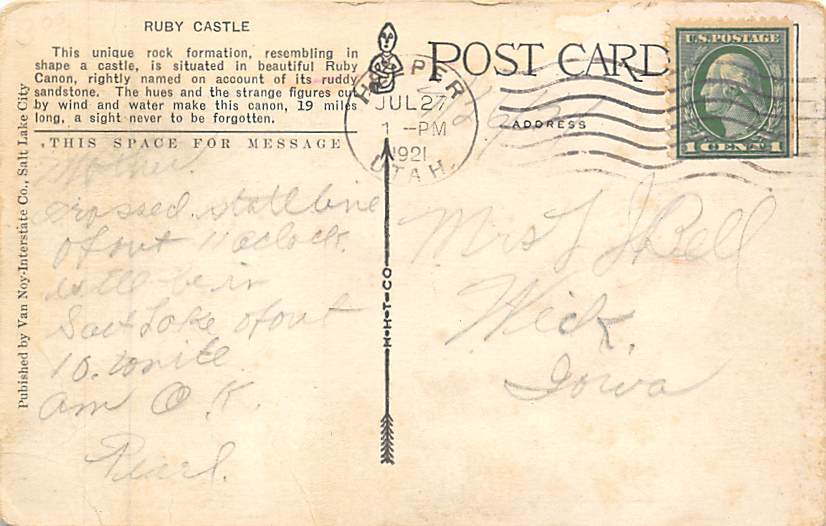 RUBY CASTLE
This unique rock formation, resembling in
shape a castle, is situated in beautiful Ruby
Canon, rightly named on account of its ruddy
sandstone. The hues and the strange figures cut
by wind and water make this canon, 19 miles
long, a sight never to be forgotten.
THIS SPACE FOR MESSAGE
Mother.
crossed state line
about 11 oclock.
will be in
Salt Lake about
10. tonite
am O.K.
Pearl.
Pubished by Van Noy-Interstate Co., Salt Lake City
M-H-T-CO
POST CARD
ADDRESS
HELPER
JUL 27
1 -PM
1921
UTAH.
U.S. POSTAGE
1 CENT 1
Mrs L J Bell
Wick,
Iowa